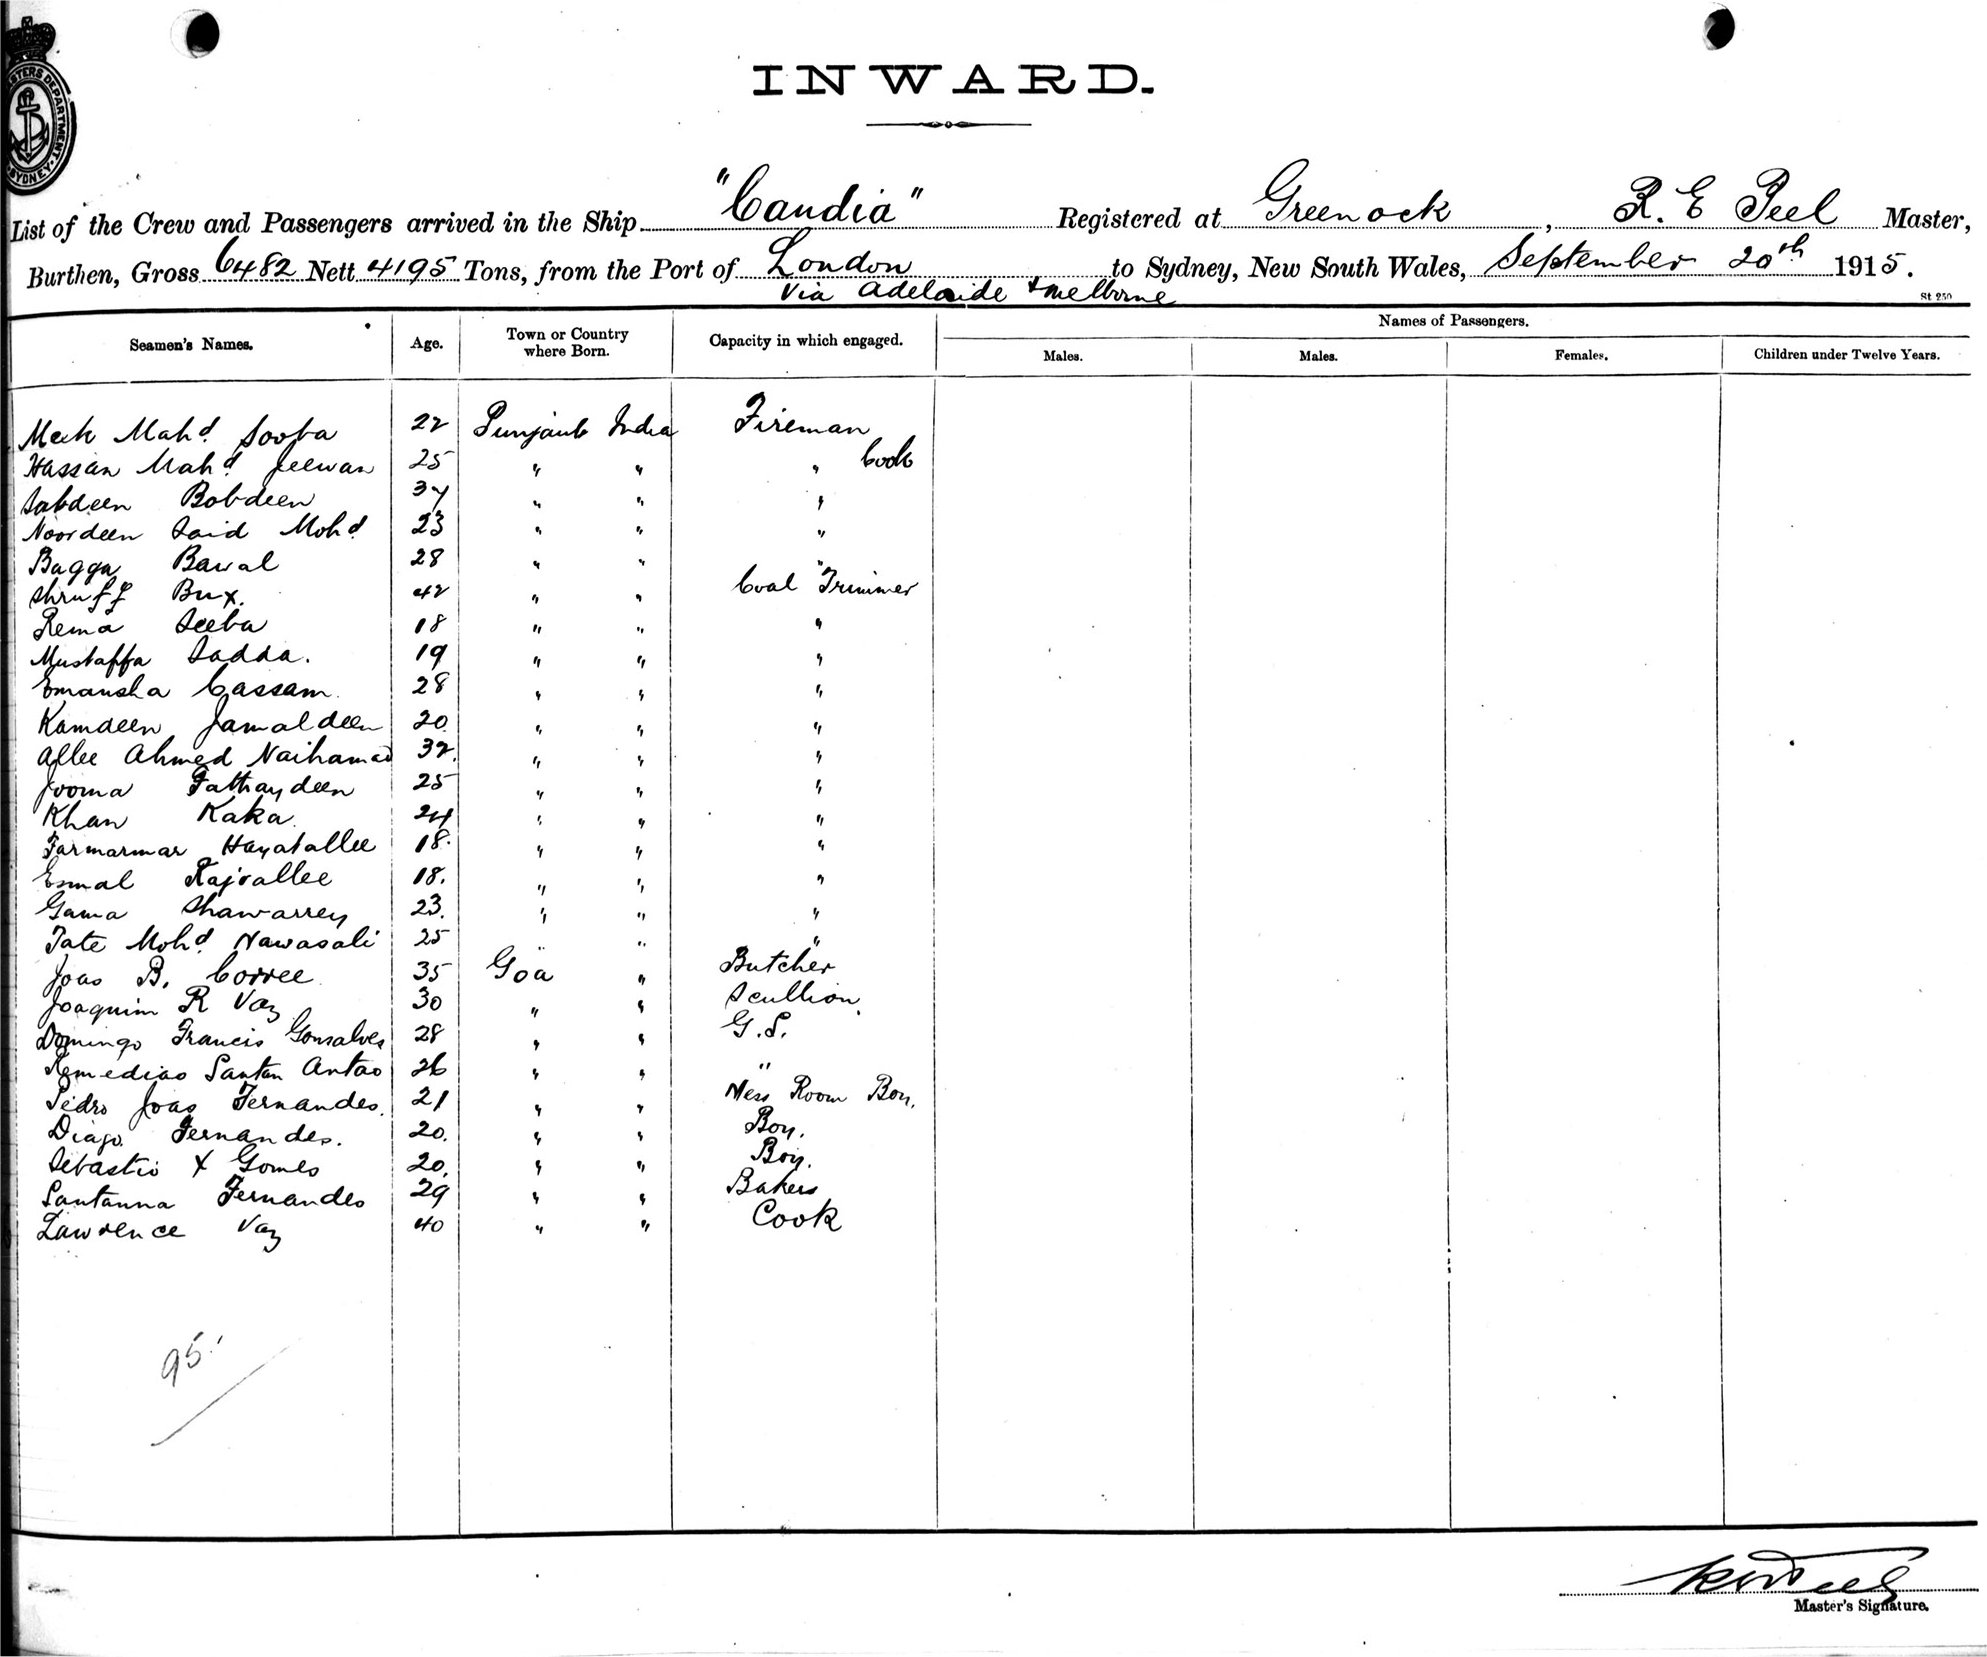 MASTERS DEPARTMENT
SYDNEY
INWARD.
List of the Crew and Passengers arrived in the Ship "Candia" Registered at Greenock, R. E Peel Master,
Burthen, Gross 6482 Nett 4195 Tons, from the Port of London to Sydney, New South Wales, September 20th 1915.
Via Adelaide & Melborne
St 250
Seamen's Names. Age. Town or Country where Born. Capacity in which engaged. Names of Passengers.
Males. Males. Females. Children under Twelve Years.
Meek Mahd Sooba 22 Punjaub India Fireman
Hassan Mahd Jeewan 25 " " " Cook
Sabdeen Bobdeen 37 " " "
Noordeen Said Mohd 23 " " "
Bagga Bawal 28 " " "
Shruff Bux. 42 " " Coal Trimmer
Rema Seeba 18 " " "
Mustaffa Sadda. 19 " " "
Emansha Cassam. 28 " " "
Kamdeen Jamaldeen 20. " " "
Allee Ahmed Naihamad 32. " " "
Jooma Fathaydeen 25 " " "
Khan Kaka 24 " " "
Farmarmar Hayatallee 18. " " "
Esmal Rajvallee 18. " " "
Gama Shawarrey 23. " " "
Tate Mohd Nawasali 25 " " "
Joao B. Corree 35 Goa " Butcher
Joaquim R Vaz 30 " " Scullion.
Domingo Francis Gonsalves 28 " " G.S.
Remedias Santan Antao 26 " " "
Pedro Joao Fernandes. 21 " " Mess Room Boy.
Diago Fernandes. 20. " " Boy.
Sebastio X Gomes 20. " " Boy.
Santanna Fernandes 29 " " Bakers
Lawrence Vaz 40 " " Cook
95
Master's Signature.